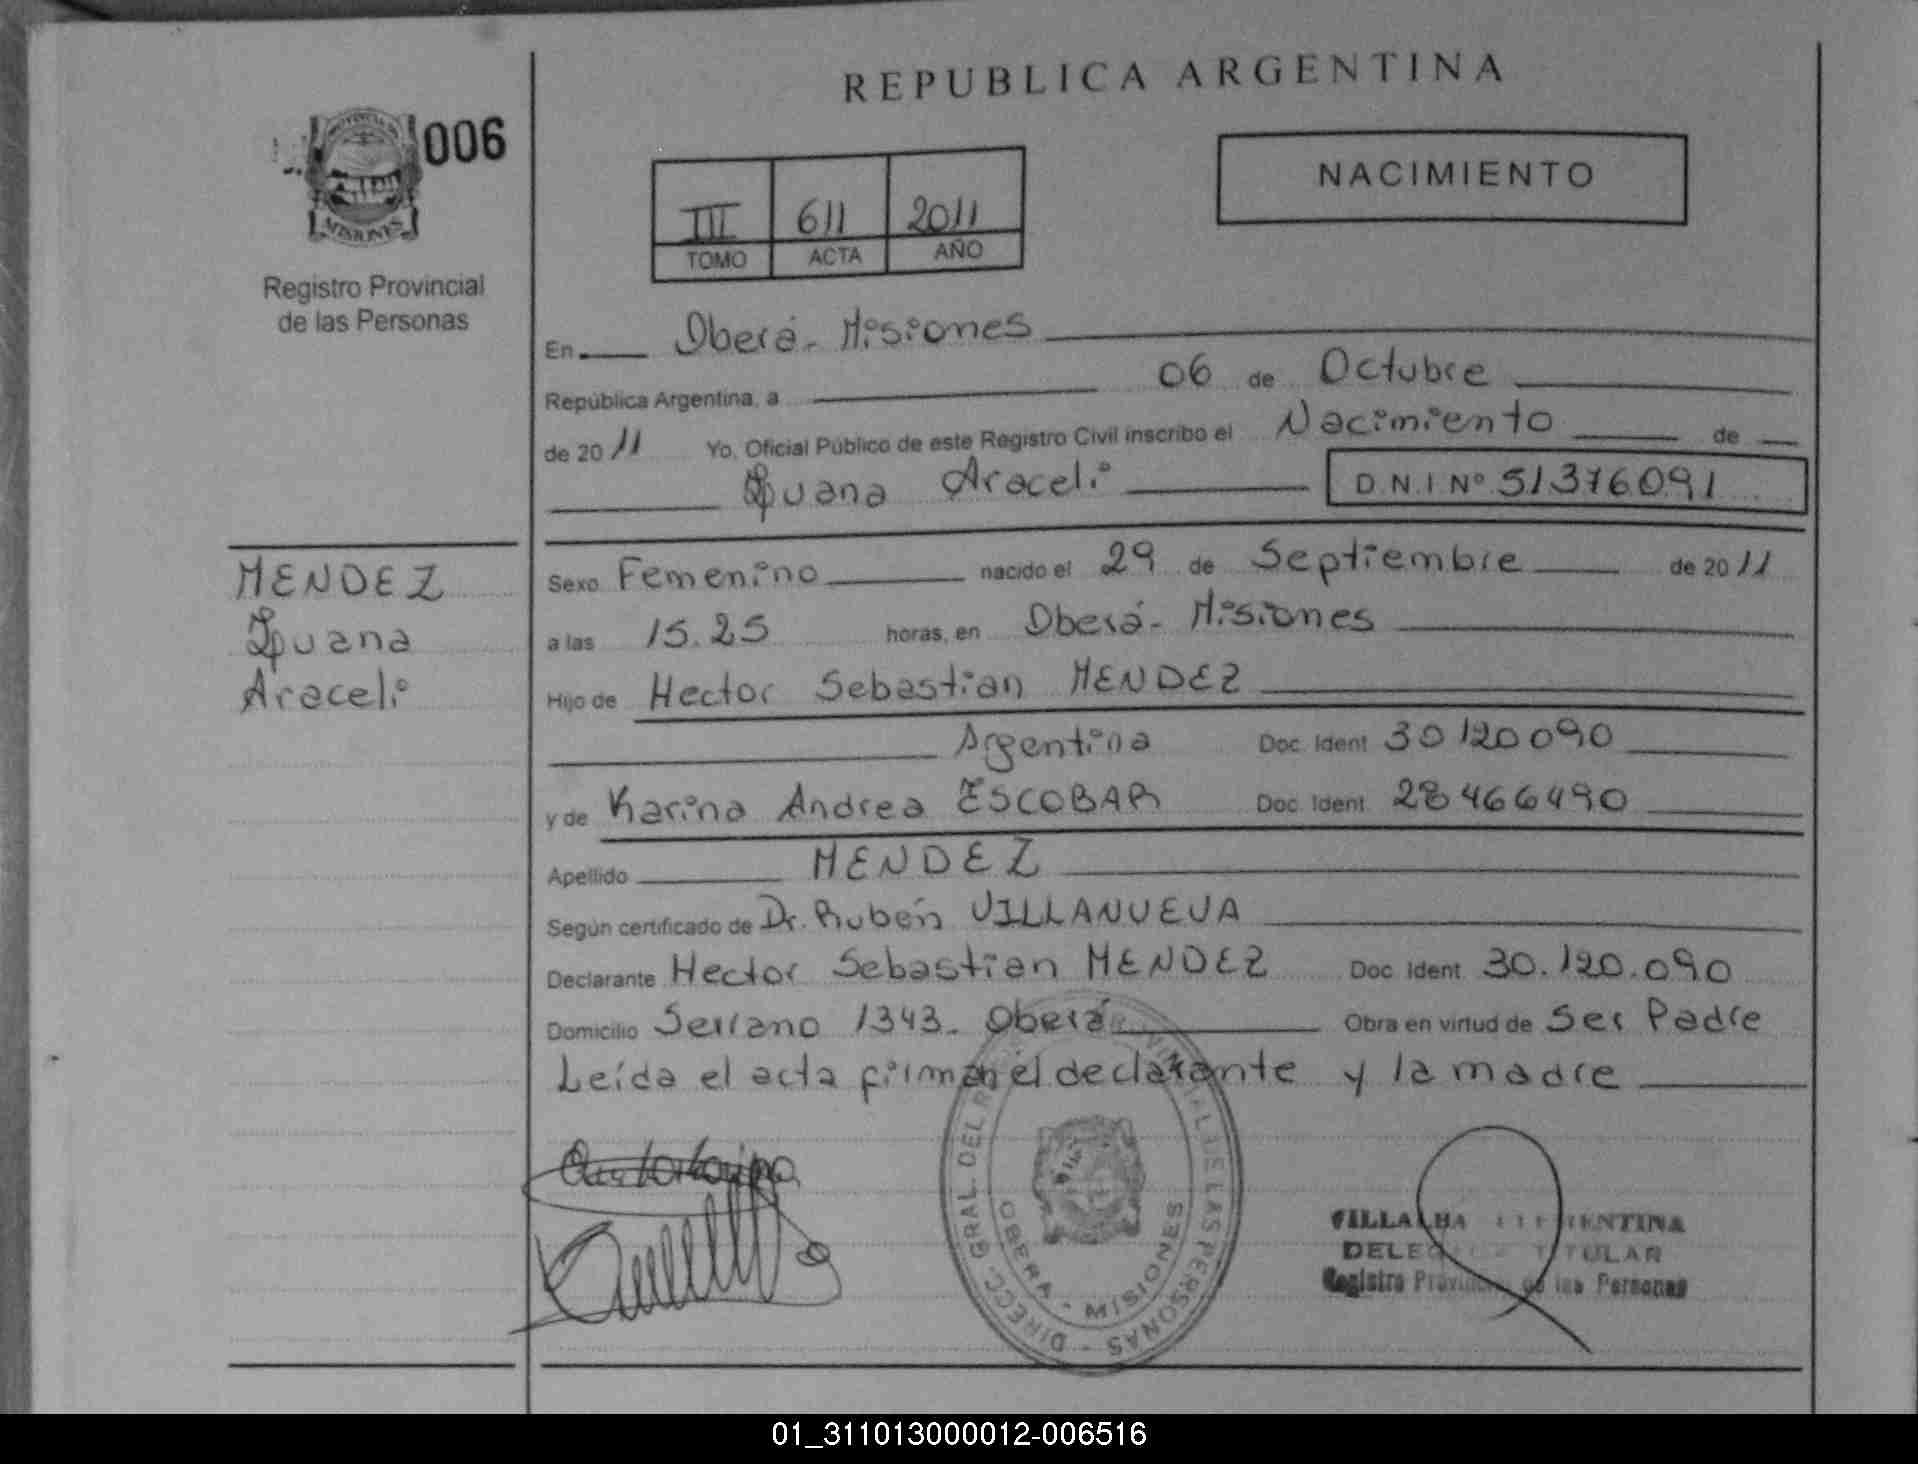 REPUBLICA ARGENTINA
PROVINCIA DE
MISIONES
006
Registro Provincial
de las Personas
NACIMIENTO
III 611 2011
TOMO ACTA AÑO
En Oberá - Misiones
República Argentina, a 06 de Octubre
de 2011 Yo, Oficial Público de este Registro Civil inscribo el Nacimiento de
Araceli D.N.I Nº 51376091
MENDEZ
Araceli
Sexo Femenino nacido el 29 de Septiembre de 2011
a las 15.25 horas, en Oberá - Misiones
Hijo de Hector Sebastian MENDEZ
Argentina Doc. Ident 30120090
y de Karina Andrea ESCOBAR Doc. Ident. 28466490
Apellido MENDEZ
Según certificado de Dr. Rubén VILLANUEVA
Declarante Hector Sebastian MENDEZ Doc. Ident. 30.120.090
Domicilio Serrano 1343 - Oberá Obra en virtud de Ser Padre
Leída el acta firman el declarante y la madre
DIRECC. GRAL. DEL PROVINCIAL DE LAS PERSONAS -
OBERA - MISIONES
VILLALBA
TITULAR
Registro Provincial de las Personas
01_311013000012-006516